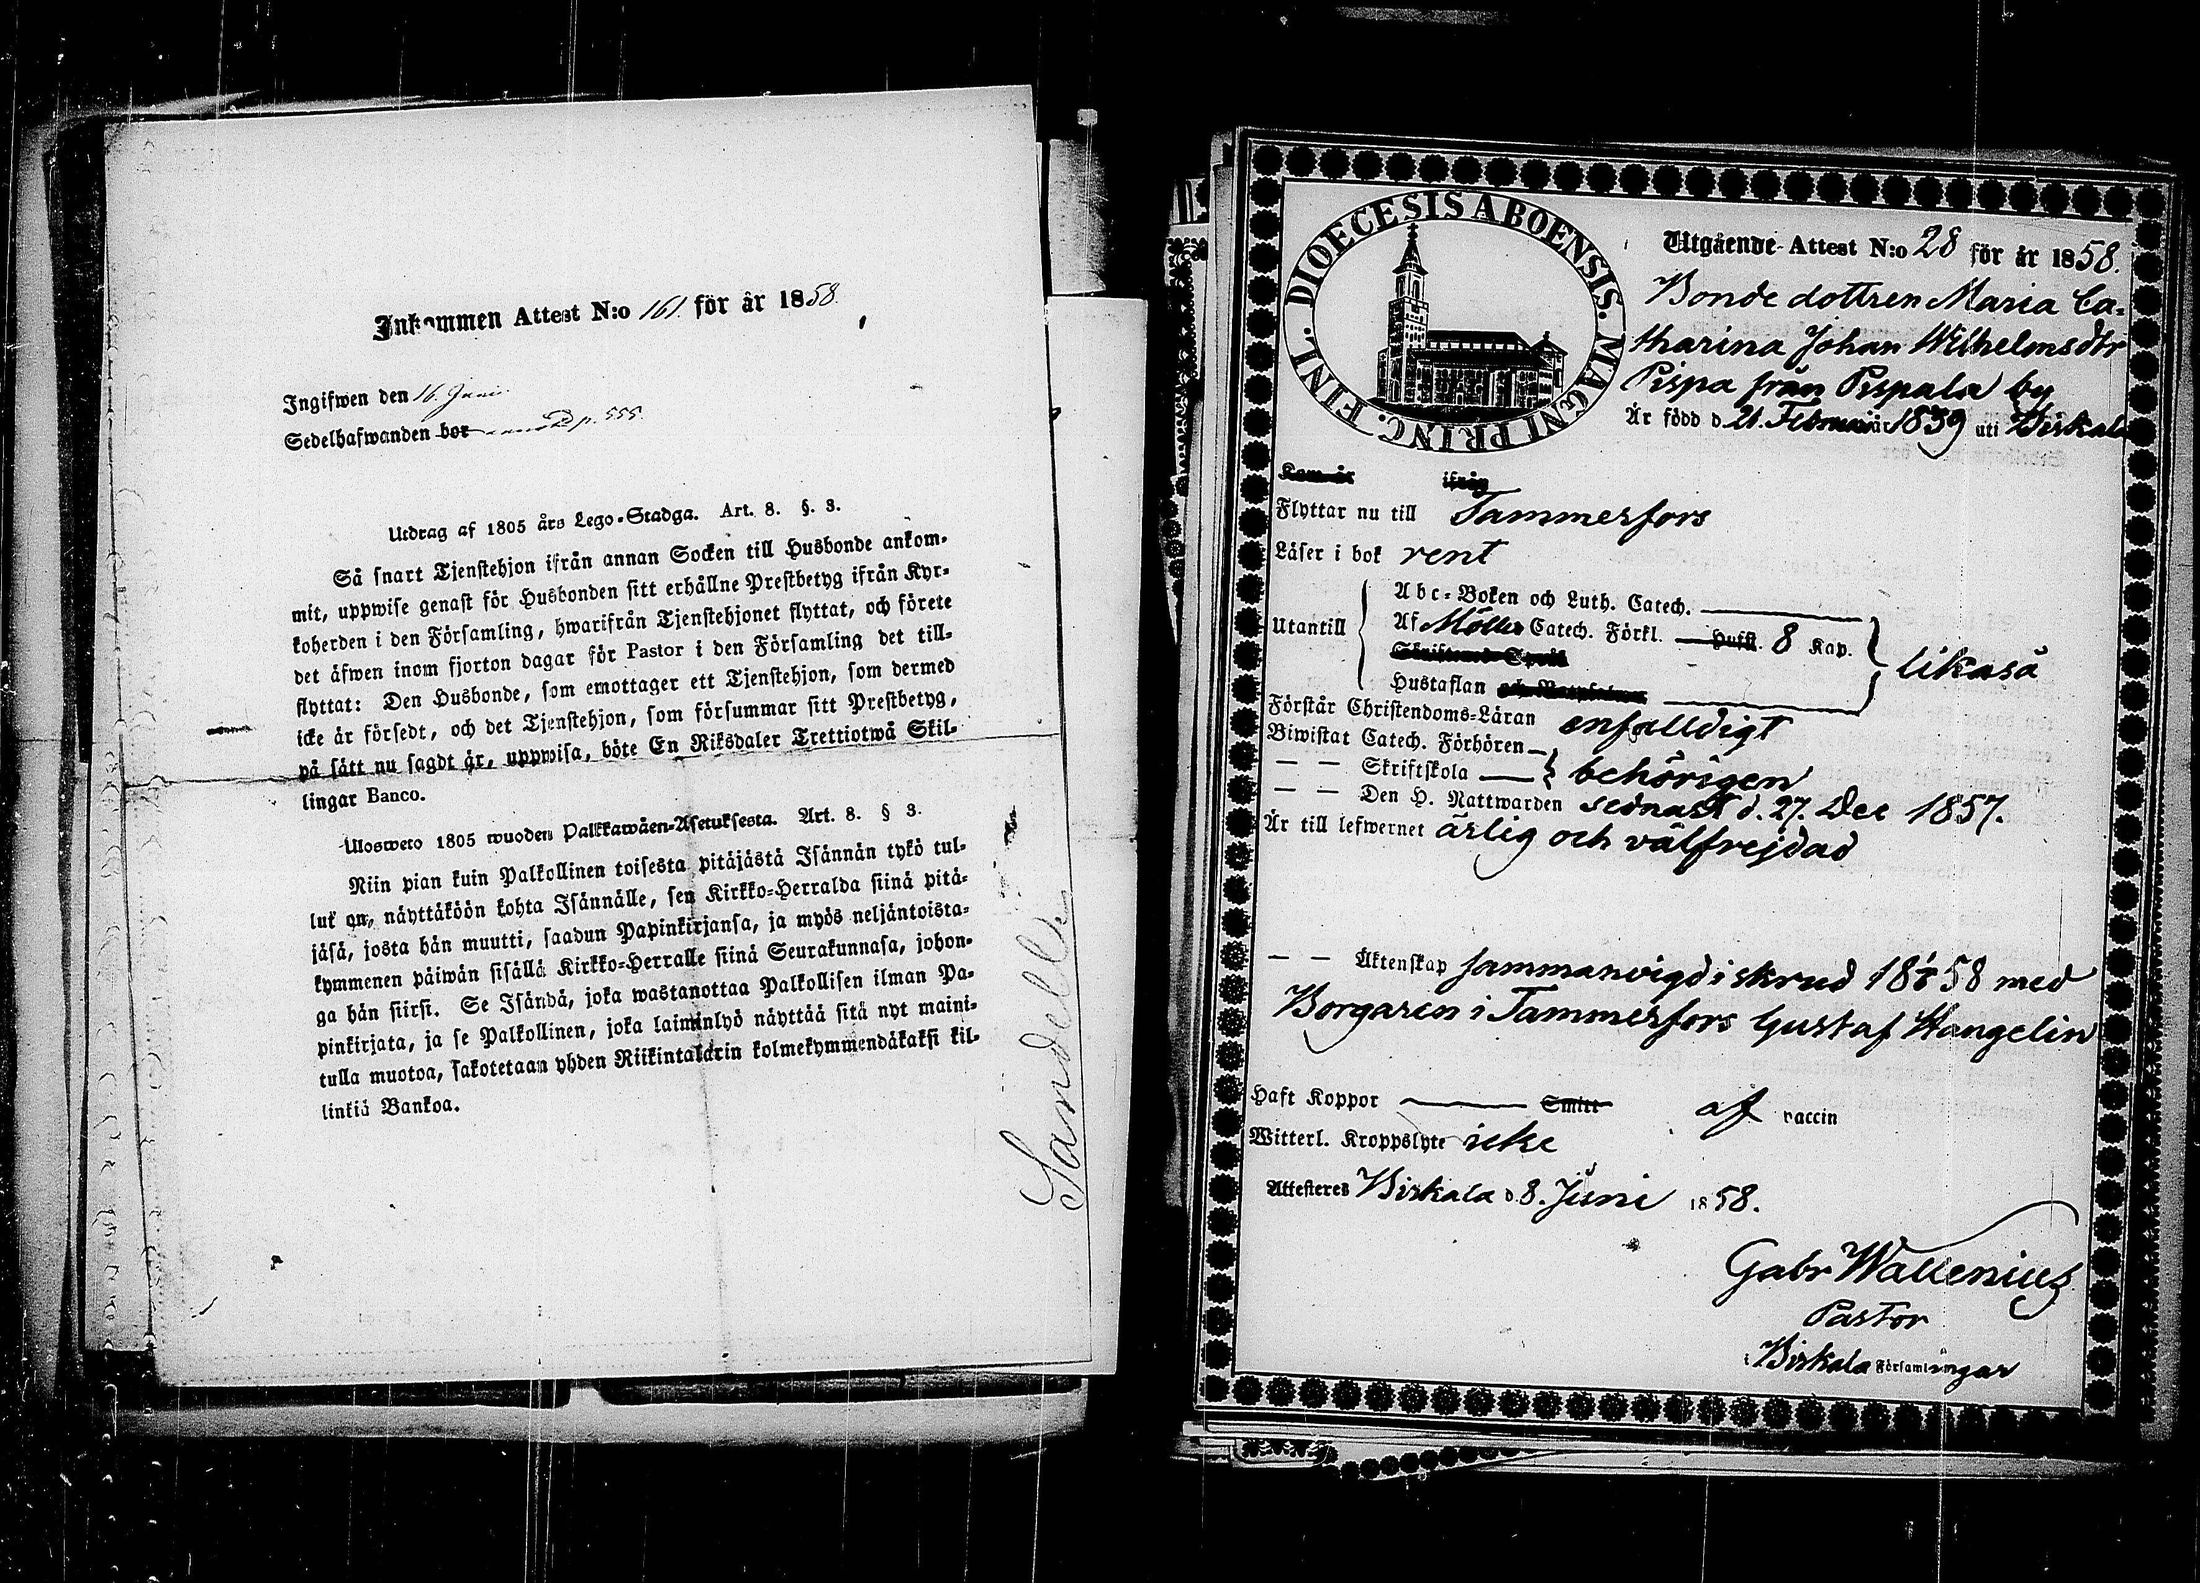 Inkommen Attest N:o 161. för år 1858.
Ingifwen den 16. Juni
Sedelhafwanden bor p. 555.
Utdrag af 1805 års Lego-Stadga. Art. 8. §. 3.
Så snart Tjenstehjon ifrån annan Socken till Husbonde ankom-
mit, uppwise genast för Husbonden sitt erhållne Prestbetyg ifrån Kyr-
koherden i den Församling, hwarifrån Tjenstehjonet flyttat, och förete
det äfwen inom fjorton dagar för Pastor i den Församling det till-
flyttat: Den Husbonde, som emottager ett Tjenstehjon, som dermed
icke är försedt, och det Tjenstehjon, som försummar sitt Prestbetyg,
på sätt nu sagdt är, uppwisa, böte En Riksdaler Trettiotwå Skil-
lingar Banco.
Ulosweto 1805 wuoden Palkkawäen-Asetuksesta. Art. 8. § 3.
Niin pian kuin Palkollinen toisesta pitäjästä Isännän tykö tul-
lut on, näyttäköön kohta Isännälle, sen Kirkko-Herralda siinä pitä-
jäsä, josta hän muutti, saadun Papinkirjansa, ja myös neljäntoista-
kymmenen päiwän sisällä Kirkko-Herralle siinä Seurakunnasa, johon-
ga hän siirsi. Se Isändä, joka wastanottaa Palkollisen ilman Pa-
pinkirjata, ja se Palkollinen, joka laiminlyö näyttää sitä nyt maini-
tulla muotoa, sakotetaan yhden Riikintalarin kolmekymmendäkaksi kil-
linkiä Bankoa.
Sandell
DIOECESIS ABOENSIS. MAGNI PRINC. FINL.
Utgående Attest N:o 28 för år 1858.
Bonde dottren Maria Ca-
tharina Johan Wilhelmsdtr
Pispa från Pispala by
Är född d. 21. Februari år 1839 uti Birkala
Kom år ifrån
Flyttar nu till Tammerfors
Läser i bok rent
Abc-Boken och Luth. Catech.
Utantill Af Möllers Catech. Förkl. Hufst. 8 Kap. likaså
Skriftenes Språk
Hustaflan
Förstår Christendoms-Läran enfalldigt
Biwistat Catech. Förhören
— — Skriftskola — behörigen
— — Den H. Nattwarden sednast d. 27. Dec 1857.
Är till lefwernet ärlig och välfrejdad
— — Äktenskap sammanvigd i skrud 18 6/6 58 med
Borgaren i Tammerfors Gustaf Hangelin
Haft Koppor — Smitt af vaccin
Witterl. Kroppslyte icke
Attesteres Birkala d. 8. Juni 1858.
Gabr Wallenius
Pastor
i Birkala Församlingar